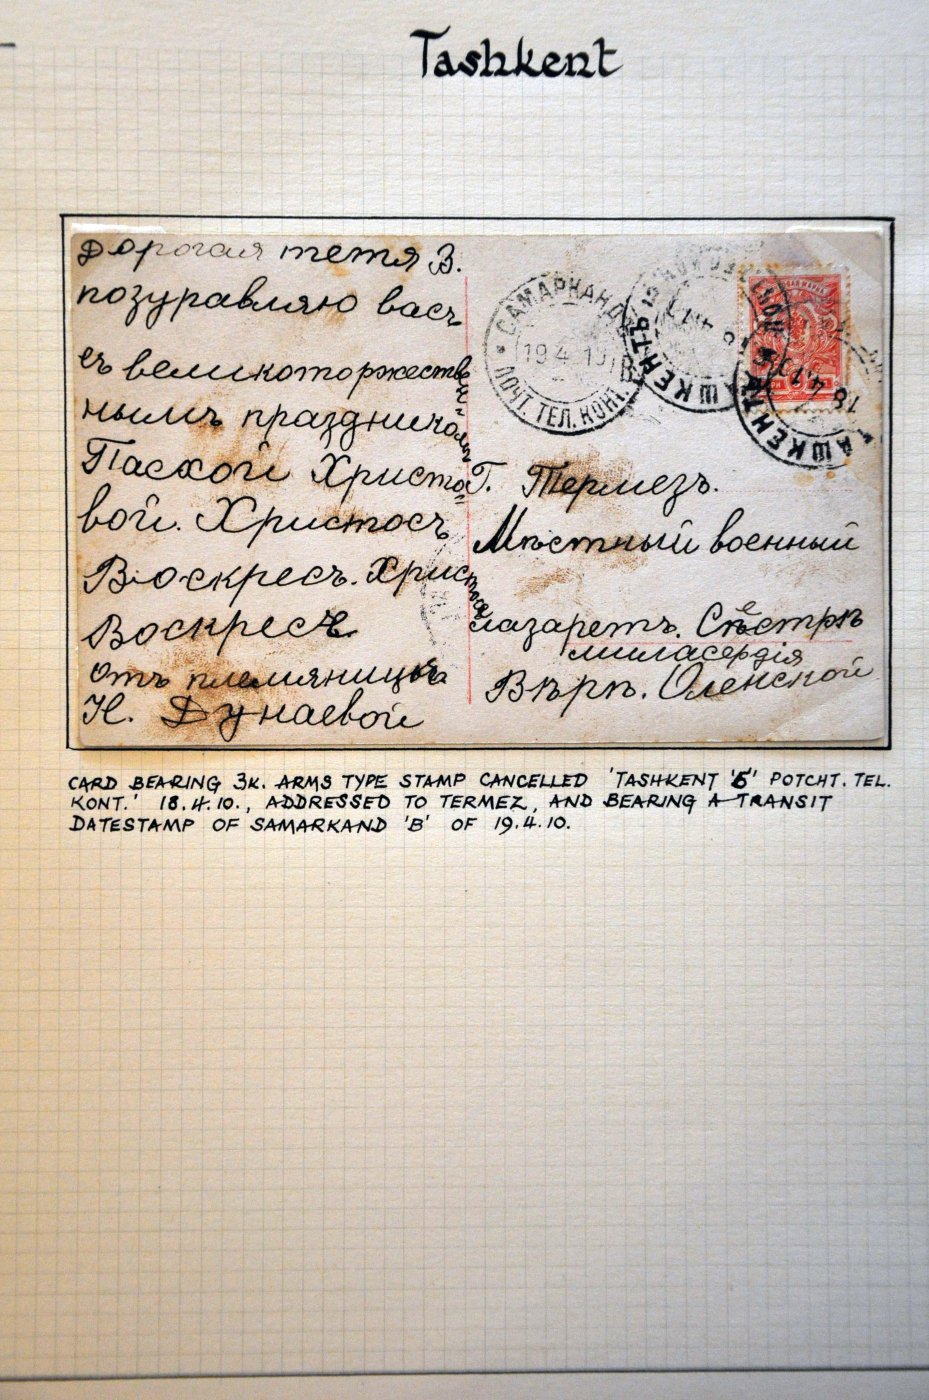 Tashkent
Дорогая тетя В.
позуравляю васъ
съ великоторжествен-
нымъ праздничомъ
Пасхой Христо-
вой. Христосъ
Воскресъ. Христосъ
Воскресъ
Отъ племяницы
Н. Дунаевой
САМАРКАНДЪ
19 4 10
В
ПОЧТ. ТЕЛ. КОНТ.
ТАШКЕНТЪ
ТАШКЕНТЪ
18 4 10
Г. Термезъ.
Мѣстный военный
лазаретъ. Сестрѣ
миласердія
Вѣрѣ. Оленской
CARD BEARING 3K. ARMS TYPE STAMP CANCELLED 'TASHKENT 'Б' POTCHT. TEL.
KONT.' 18.4.10., ADDRESSED TO TERMEZ, AND BEARING A TRANSIT
DATESTAMP OF SAMARKAND 'B' OF 19.4.10.